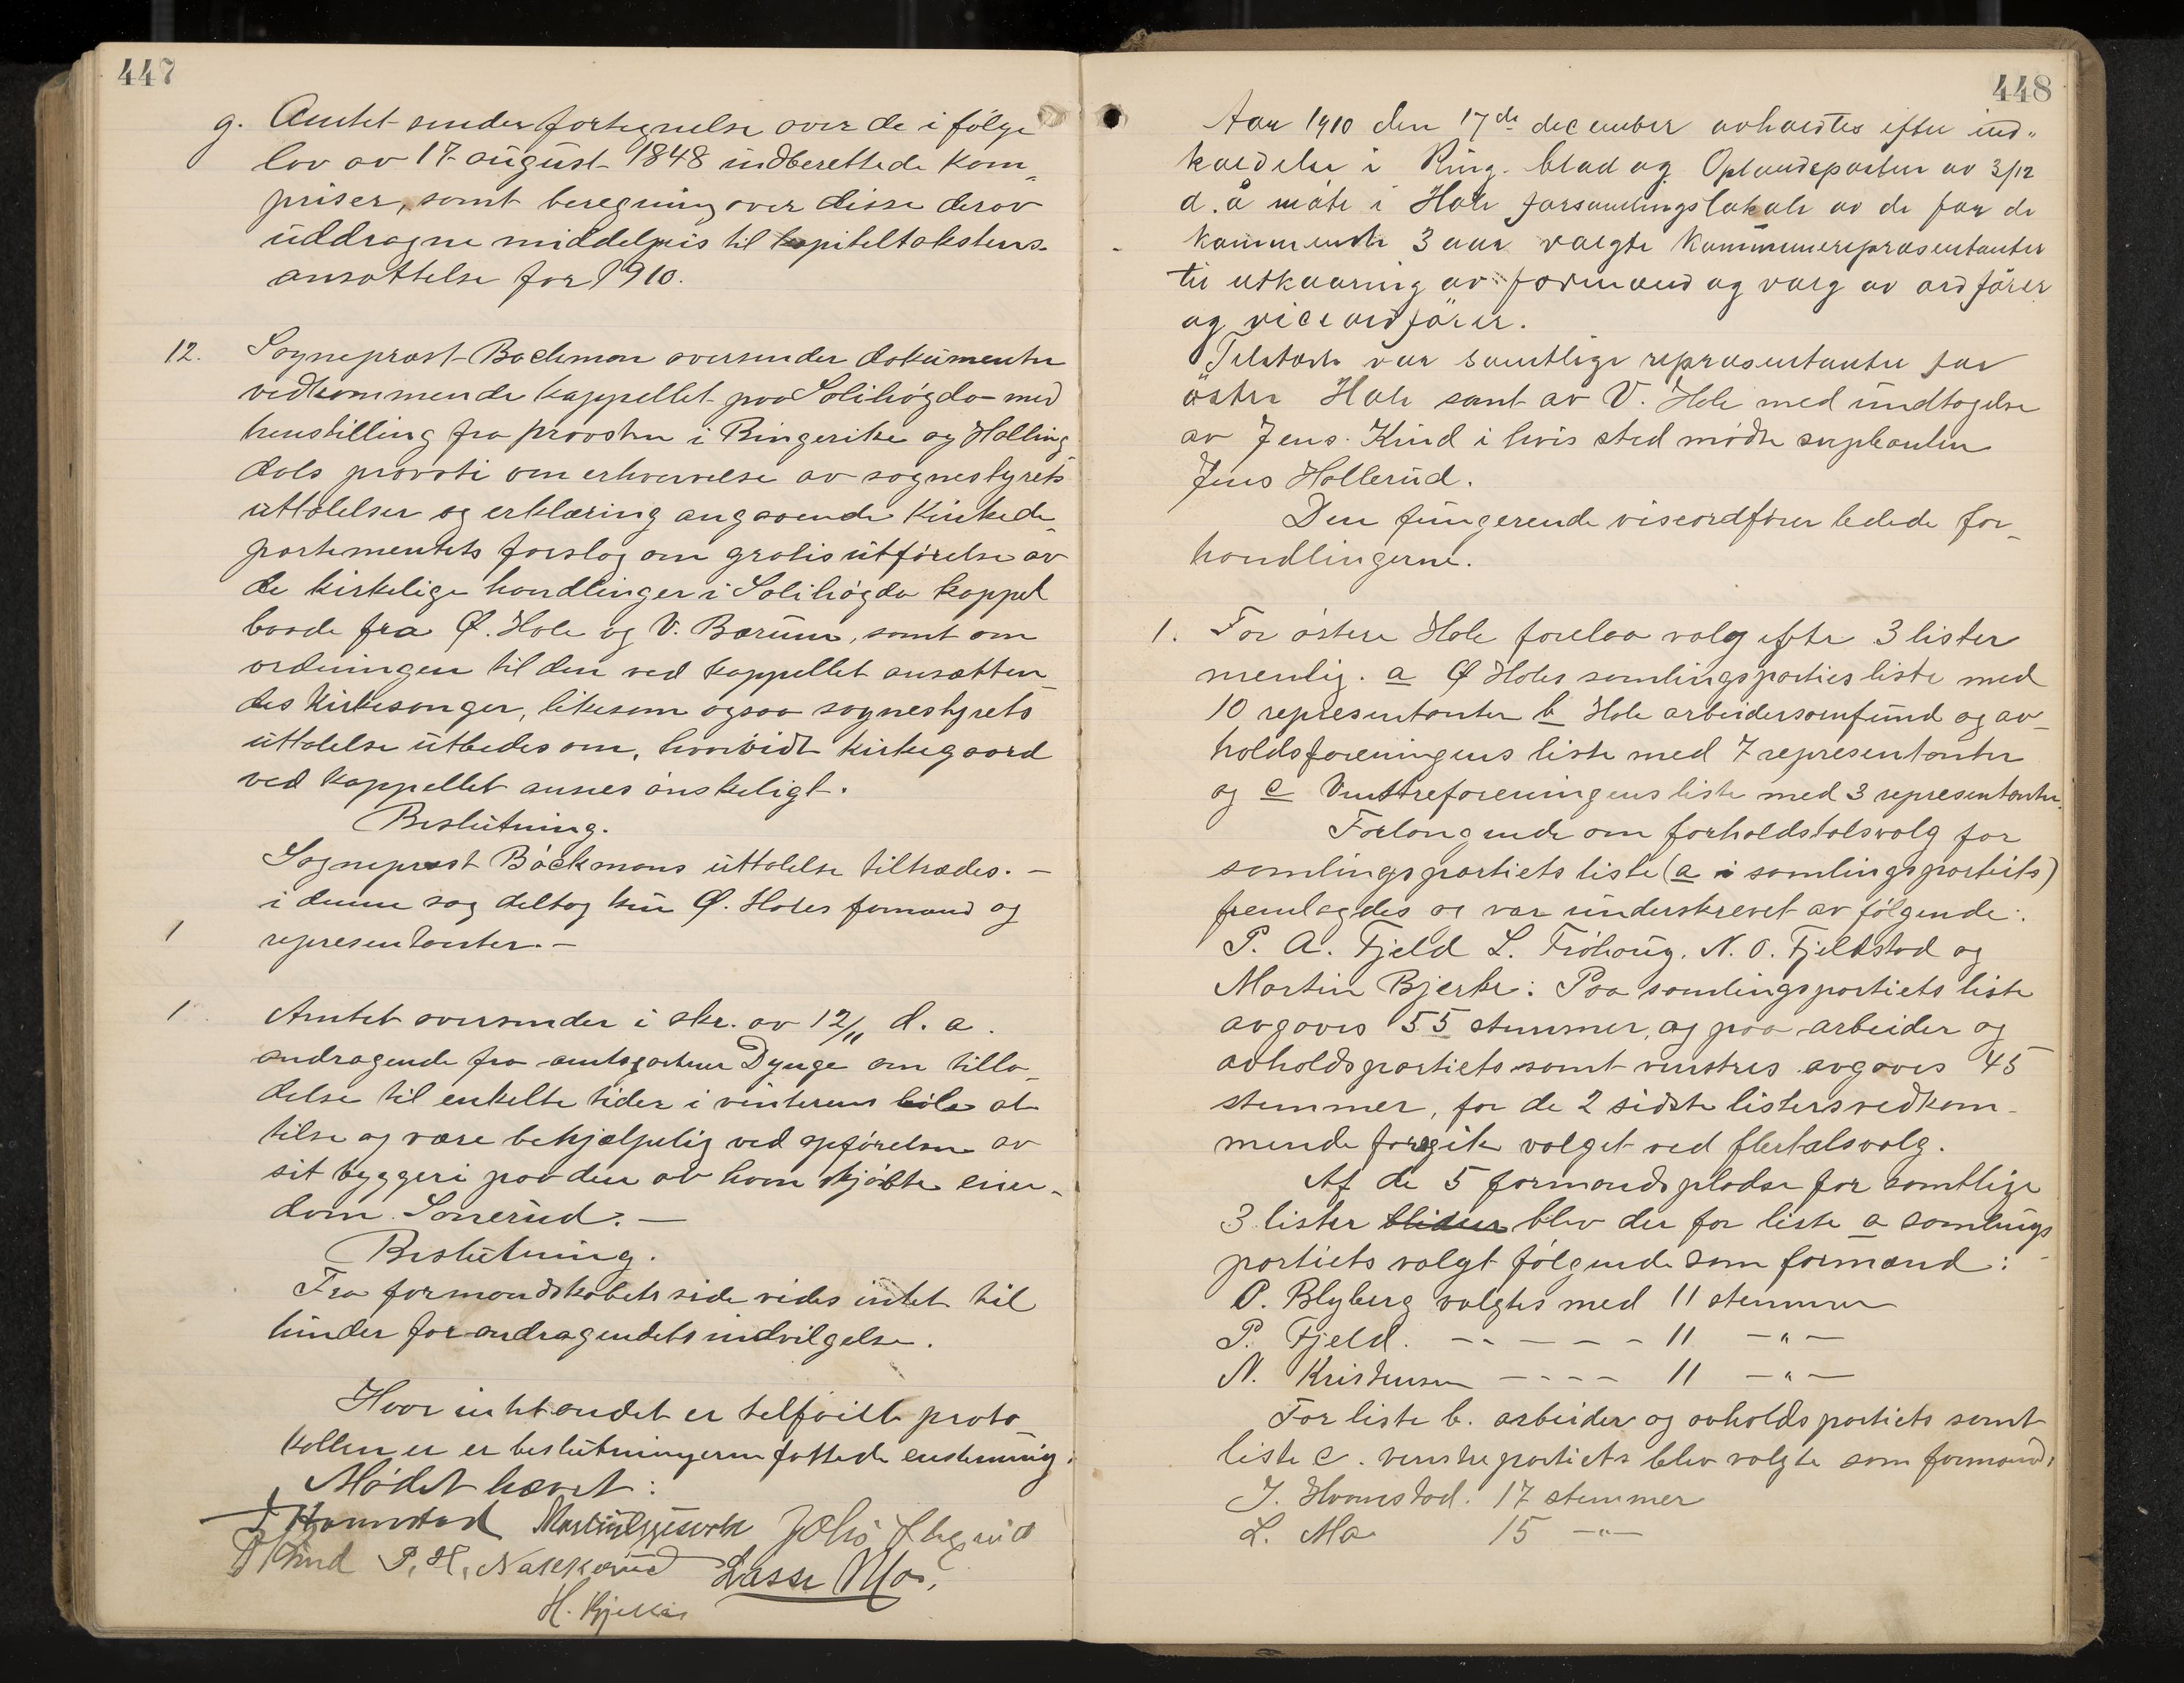 447
g. Amtet sender fortegnelse over de i følge
lov av 17 august 1848 indberettede korn-
priser, samt beregning over disse derav
uddragne middelpris til kapiteltakstens
ansættelse for 1910.
12. Sogneprest Bockman oversender dokumenter
vedkommende kappellet paa Solihögda med
henstilling fra provsten i Ringerike og Halling-
dals provsti om erhvervelse av sognestyrets
uttalelser og erklæring angaaende Kirkede-
partementets forslag om gratis utførelse av
de kirkelige handlinger i Solihögda kappel
baade fra Ø. Hole og V. Bærum, samt om
ordningen til den ved kappellet ansætten-
des Kirkesanger, likesom ogsaa sognestyrets
uttalelse utbedes om, hvorvidt kirkegaard
ved kappellet ansees ønskeligt.
Beslutning.
Sogneprest Böckmans uttalelse tiltrædes. —
i denne sag deltog kun Ø. Holes formænd og
1 representanter. —
1 Amtet oversender i skr. av 12/11 d. a.
andragende fra amtsgartner Dynge om tilla-
delse til enkelte tider i vinterens löb at
tilse og være behjælpelig ved opførelsen av
sit byggeri paa den av ham kjöbte eien-
dom Sonerud. —
Beslutning.
Fra formandskabets side vides intet til
hinder for andragendets indvilgelse.
Hvor intet andet er tilföiet proto-
kollen er beslutningerne fattede enstemmig.
Mødet hævet:
J Hornstad Martin Gjesvok
P. H. Nakkerud Lasse Mo.
448
Aar 1910 den 17de december avholdtes efter ind-
kaldelse i Ring. blad og Oplandsposten av 3/12
d. å möte i Hole forsamlingslokale av de for de
kommende 3 aar valgte Kommunerepræsentanter
til utkaaring av formænd og valg av ordförer
og viceordförer.
Tilstede var samtlige repræsentanter for
östre Hole samt av V. Hole med undtagelse
av Jens. Kind i hvis sted mødte suplanten
Jens Hollerud.
Den fungerende viseordfører ledede for-
handlingerne.
1. For östere Hole forelaa valg efter 3 lister
nemlig. a Ø Holes samlingsparties liste med
10 representanter b Hole arbeidersamfund og av-
holdsforeningens liste med 7 representanter
og c Venstreforeningens liste med 3 representanter.
Forlangende om forholdstalsvalg for
samlingspartiets liste (a i samlingspartiets)
fremlagdes og var underskrevet av følgende:
P. A. Fjeld L. Fröhaug. N. O. Fjeldstad og
Martin Bjerke: Paa samlingspartiets liste
avgaves 55 stemmer, og paa arbeider og
avholdspartiets samt venstres avgaves 45
stemmer, for de 2 sidste listers vedkom-
mende foregik valget ved flertalsvalg.
Af de 5 formandspladse for samtlige
3 lister bliden blev der for liste a samlings
partiets valgt følgende som formænd:
O. Blyberg valgtes med 11 stemmer
P. Fjeld. — — — — — 11 —"—
N. Kristensen — — — — 11 —"—
For liste b. arbeider og avholdspartiets samt
liste c. venstrepartiets blev valgte som formænd.
J. Hornstad. 17 stemmer
L. Mo 15 —"—